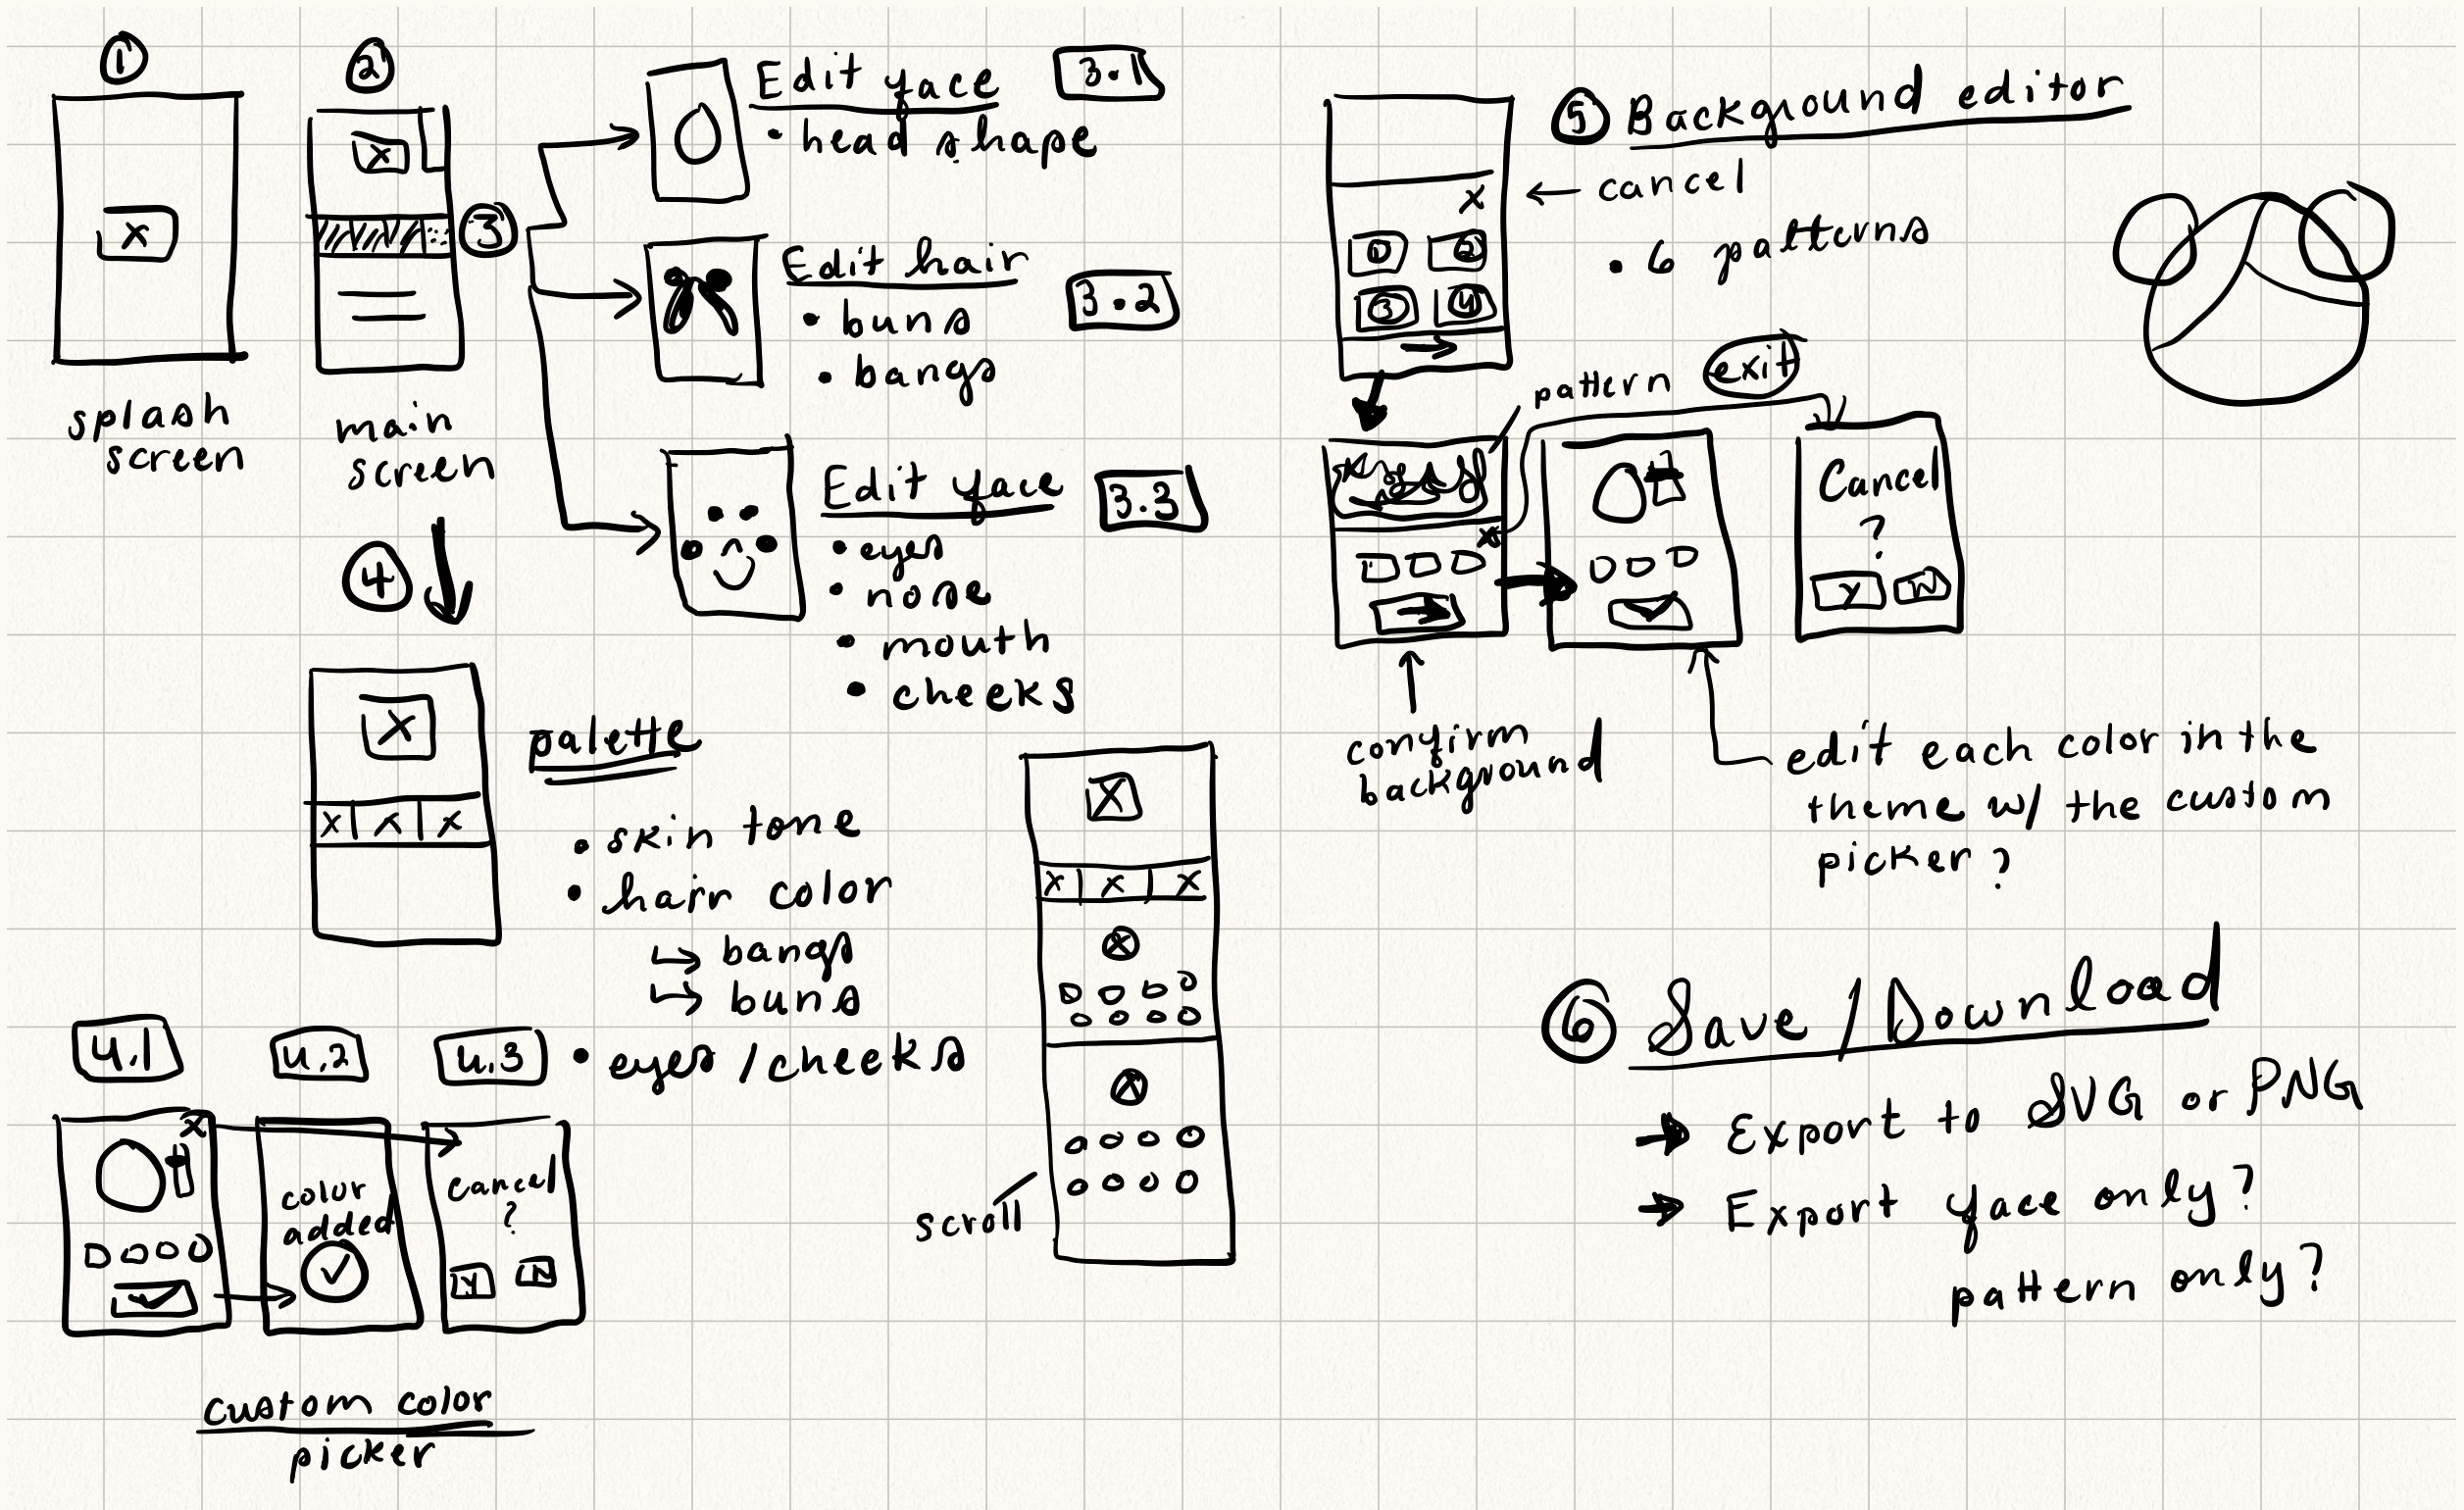 1
splash
screen
2
main
screen
3
Edit face
3.1
• head shape
Edit hair
3.2
• buns
• bangs
Edit face
3.3
• eyes
• nose
• mouth
• cheeks
4
x
x x x
palette
• skin tone
• hair color
↳ bangs
↳ buns
• eyes / cheeks
4.1
4.2
4.3
x
color
added
cancel
?
Y N
custom color
picker
x
x x x
x
x
scroll
5 Background editor
x ← cancel
• 6 patterns
1 2
3 4
pattern
exit
x
Cancel
?
Y N
confirm
background
edit each color in the
theme w/ the custom
picker?
6 Save / Download
→ Export to SVG or PNG
→ Export face only?
pattern only?